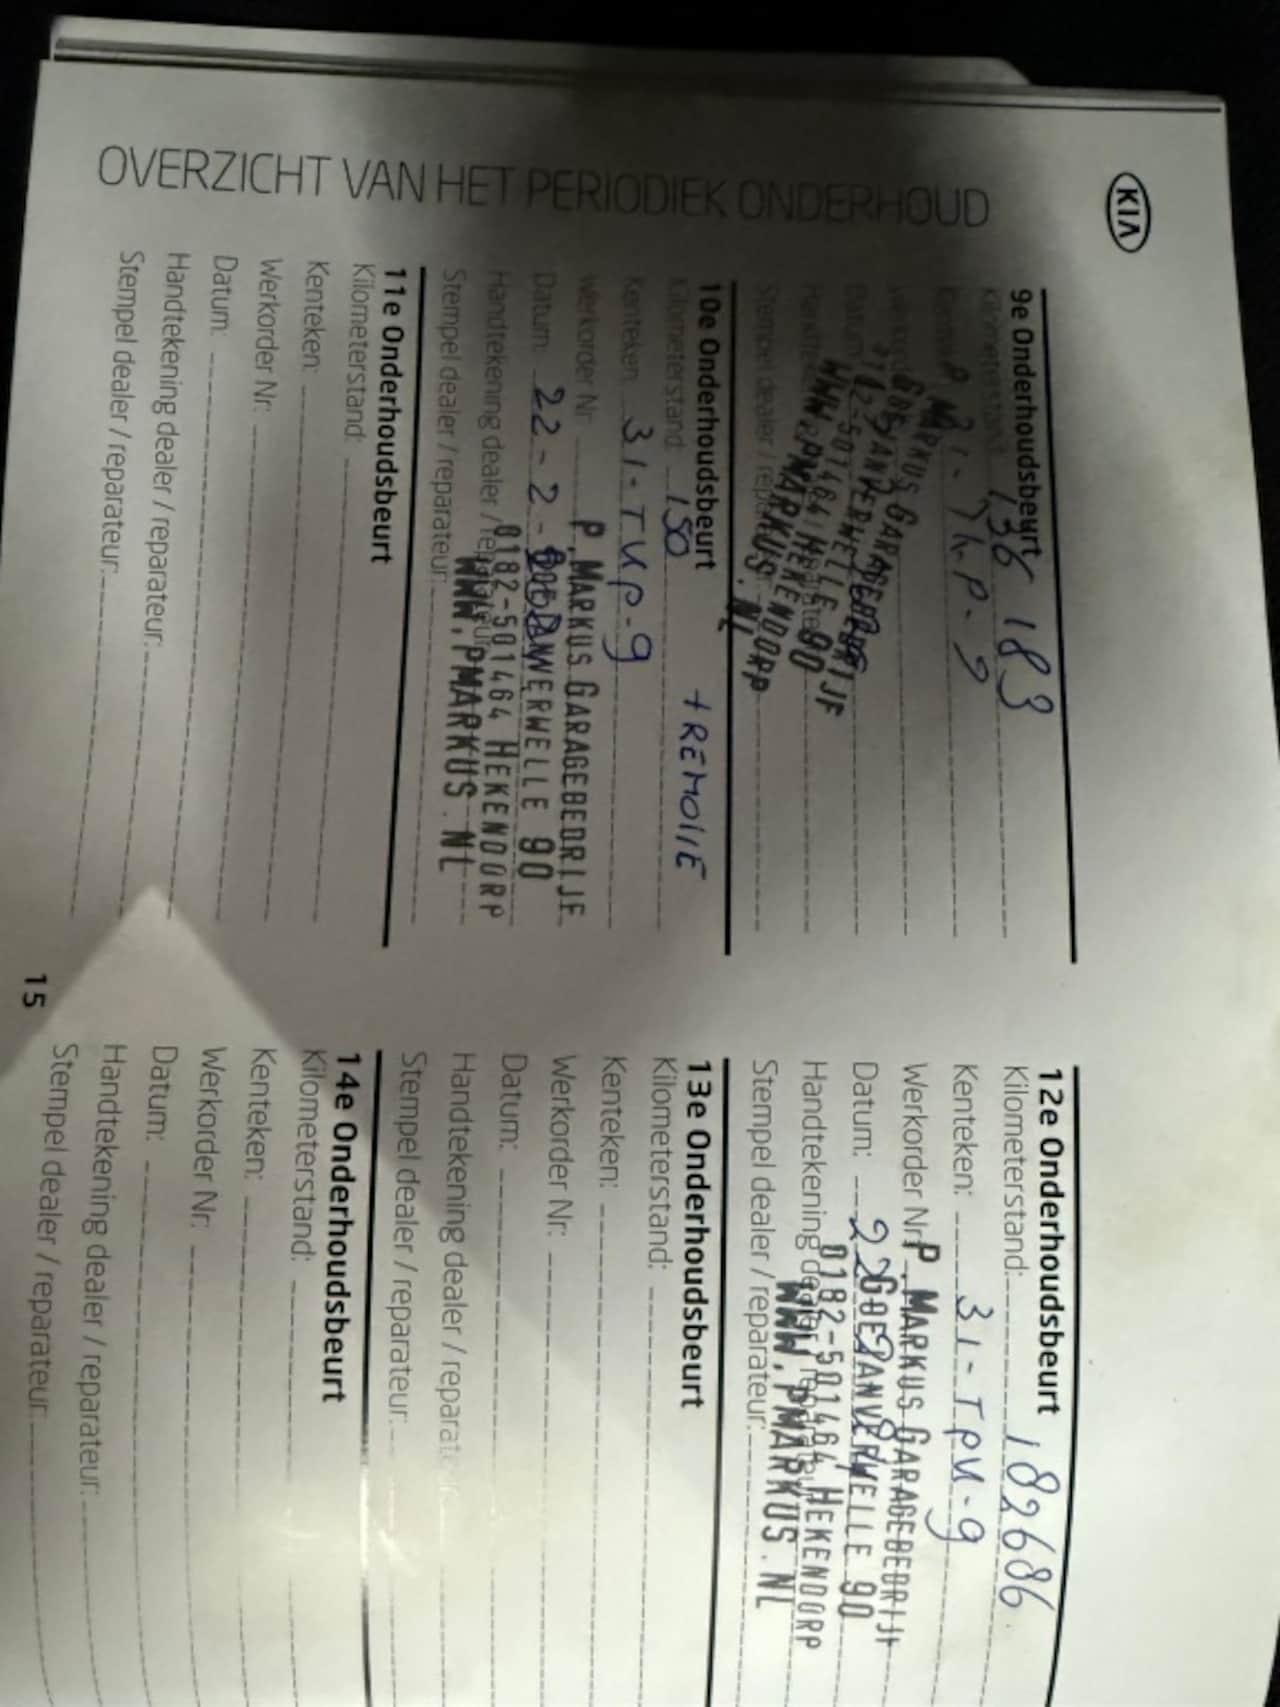 KIA
OVERZICHT VAN HET PERIODIEK ONDERHOUD
9e Onderhoudsbeurt
Kilometerstand: 136 183
P. MARKUS GARAGEBEDRIJF
GOEJANVERWELLE 90
0182-501464 HEKENDORP
WWW.PMARKUS.NL
Stempel dealer /
10e Onderhoudsbeurt
+ REMOLIE
Kilometerstand: 150
Kenteken: 31-TUP-9
Werkorder Nr:
P. MARKUS GARAGEBEDRIJF
Datum: 22-2-
GOEJANVERWELLE 90
Handtekening dealer / reparateur:
0182-501464 HEKENDORP
Stempel dealer / reparateur:
WWW.PMARKUS.NL
11e Onderhoudsbeurt
Kilometerstand:
Kenteken:
Werkorder Nr:
Datum:
Handtekening dealer / reparateur:
Stempel dealer / reparateur:
15
12e Onderhoudsbeurt
Kilometerstand: 182686
Kenteken: 31-TPU-9
Werkorder Nr:
P. MARKUS GARAGEBEDRIJF
Datum:
GOEJANVERWELLE 90
Handtekening dealer / reparateur:
0182-501464 HEKENDORP
Stempel dealer / reparateur:
WWW.PMARKUS.NL
13e Onderhoudsbeurt
Kilometerstand:
Kenteken:
Werkorder Nr:
Datum:
Handtekening dealer /
Stempel dealer / reparateur:
14e Onderhoudsbeurt
Kilometerstand:
Kenteken:
Werkorder Nr:
Datum:
Handtekening dealer / reparateur:
Stempel dealer / reparateur: